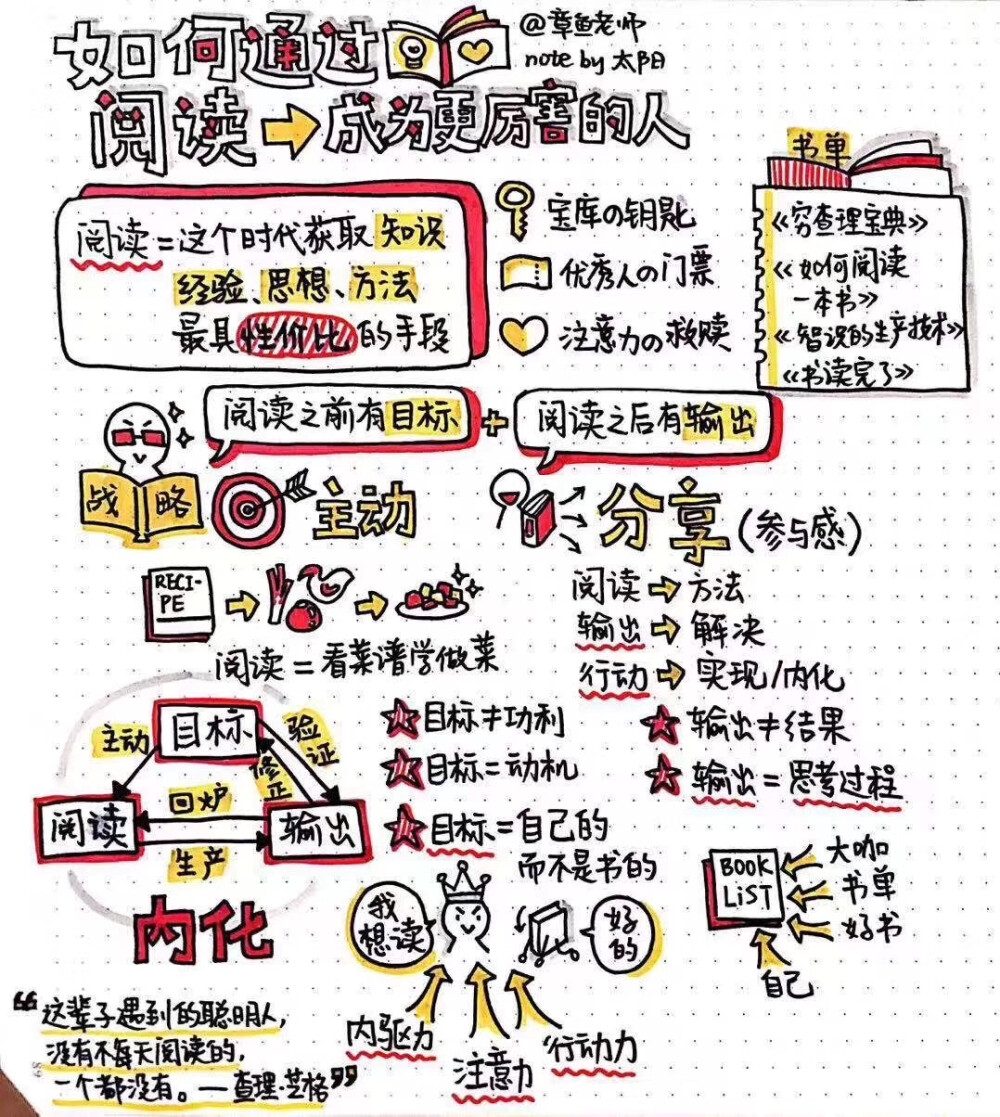 如何通过
阅读→成为更厉害的人
@章鱼老师
note by 太阳
阅读=这个时代获取知识
经验、思想、方法
最具性价比的手段
宝库の钥匙
优秀人の门票
注意力の救赎
书单
《穷查理宝典》
《如何阅读
一本书》
《智识的生产技术》
《书读完了》
阅读之前有目标
+
阅读之后有输出
战略
主动
分享(参与感)
RECI-
PE
阅读=看菜谱学做菜
阅读→方法
输出→解决
行动→实现/内化
目标
主动
验证
修正
阅读
回炉
生产
输出
内化
目标≠功利
目标=动机
目标=自己的
而不是书的
输出≠结果
输出=思考过程
我
想读
好
的
内驱力
注意力
行动力
BOOK
LiST
大咖
书单
好书
自己
“这辈子遇到的聪明人,
没有不每天阅读的,
一个都没有。—查理·芒格”
89